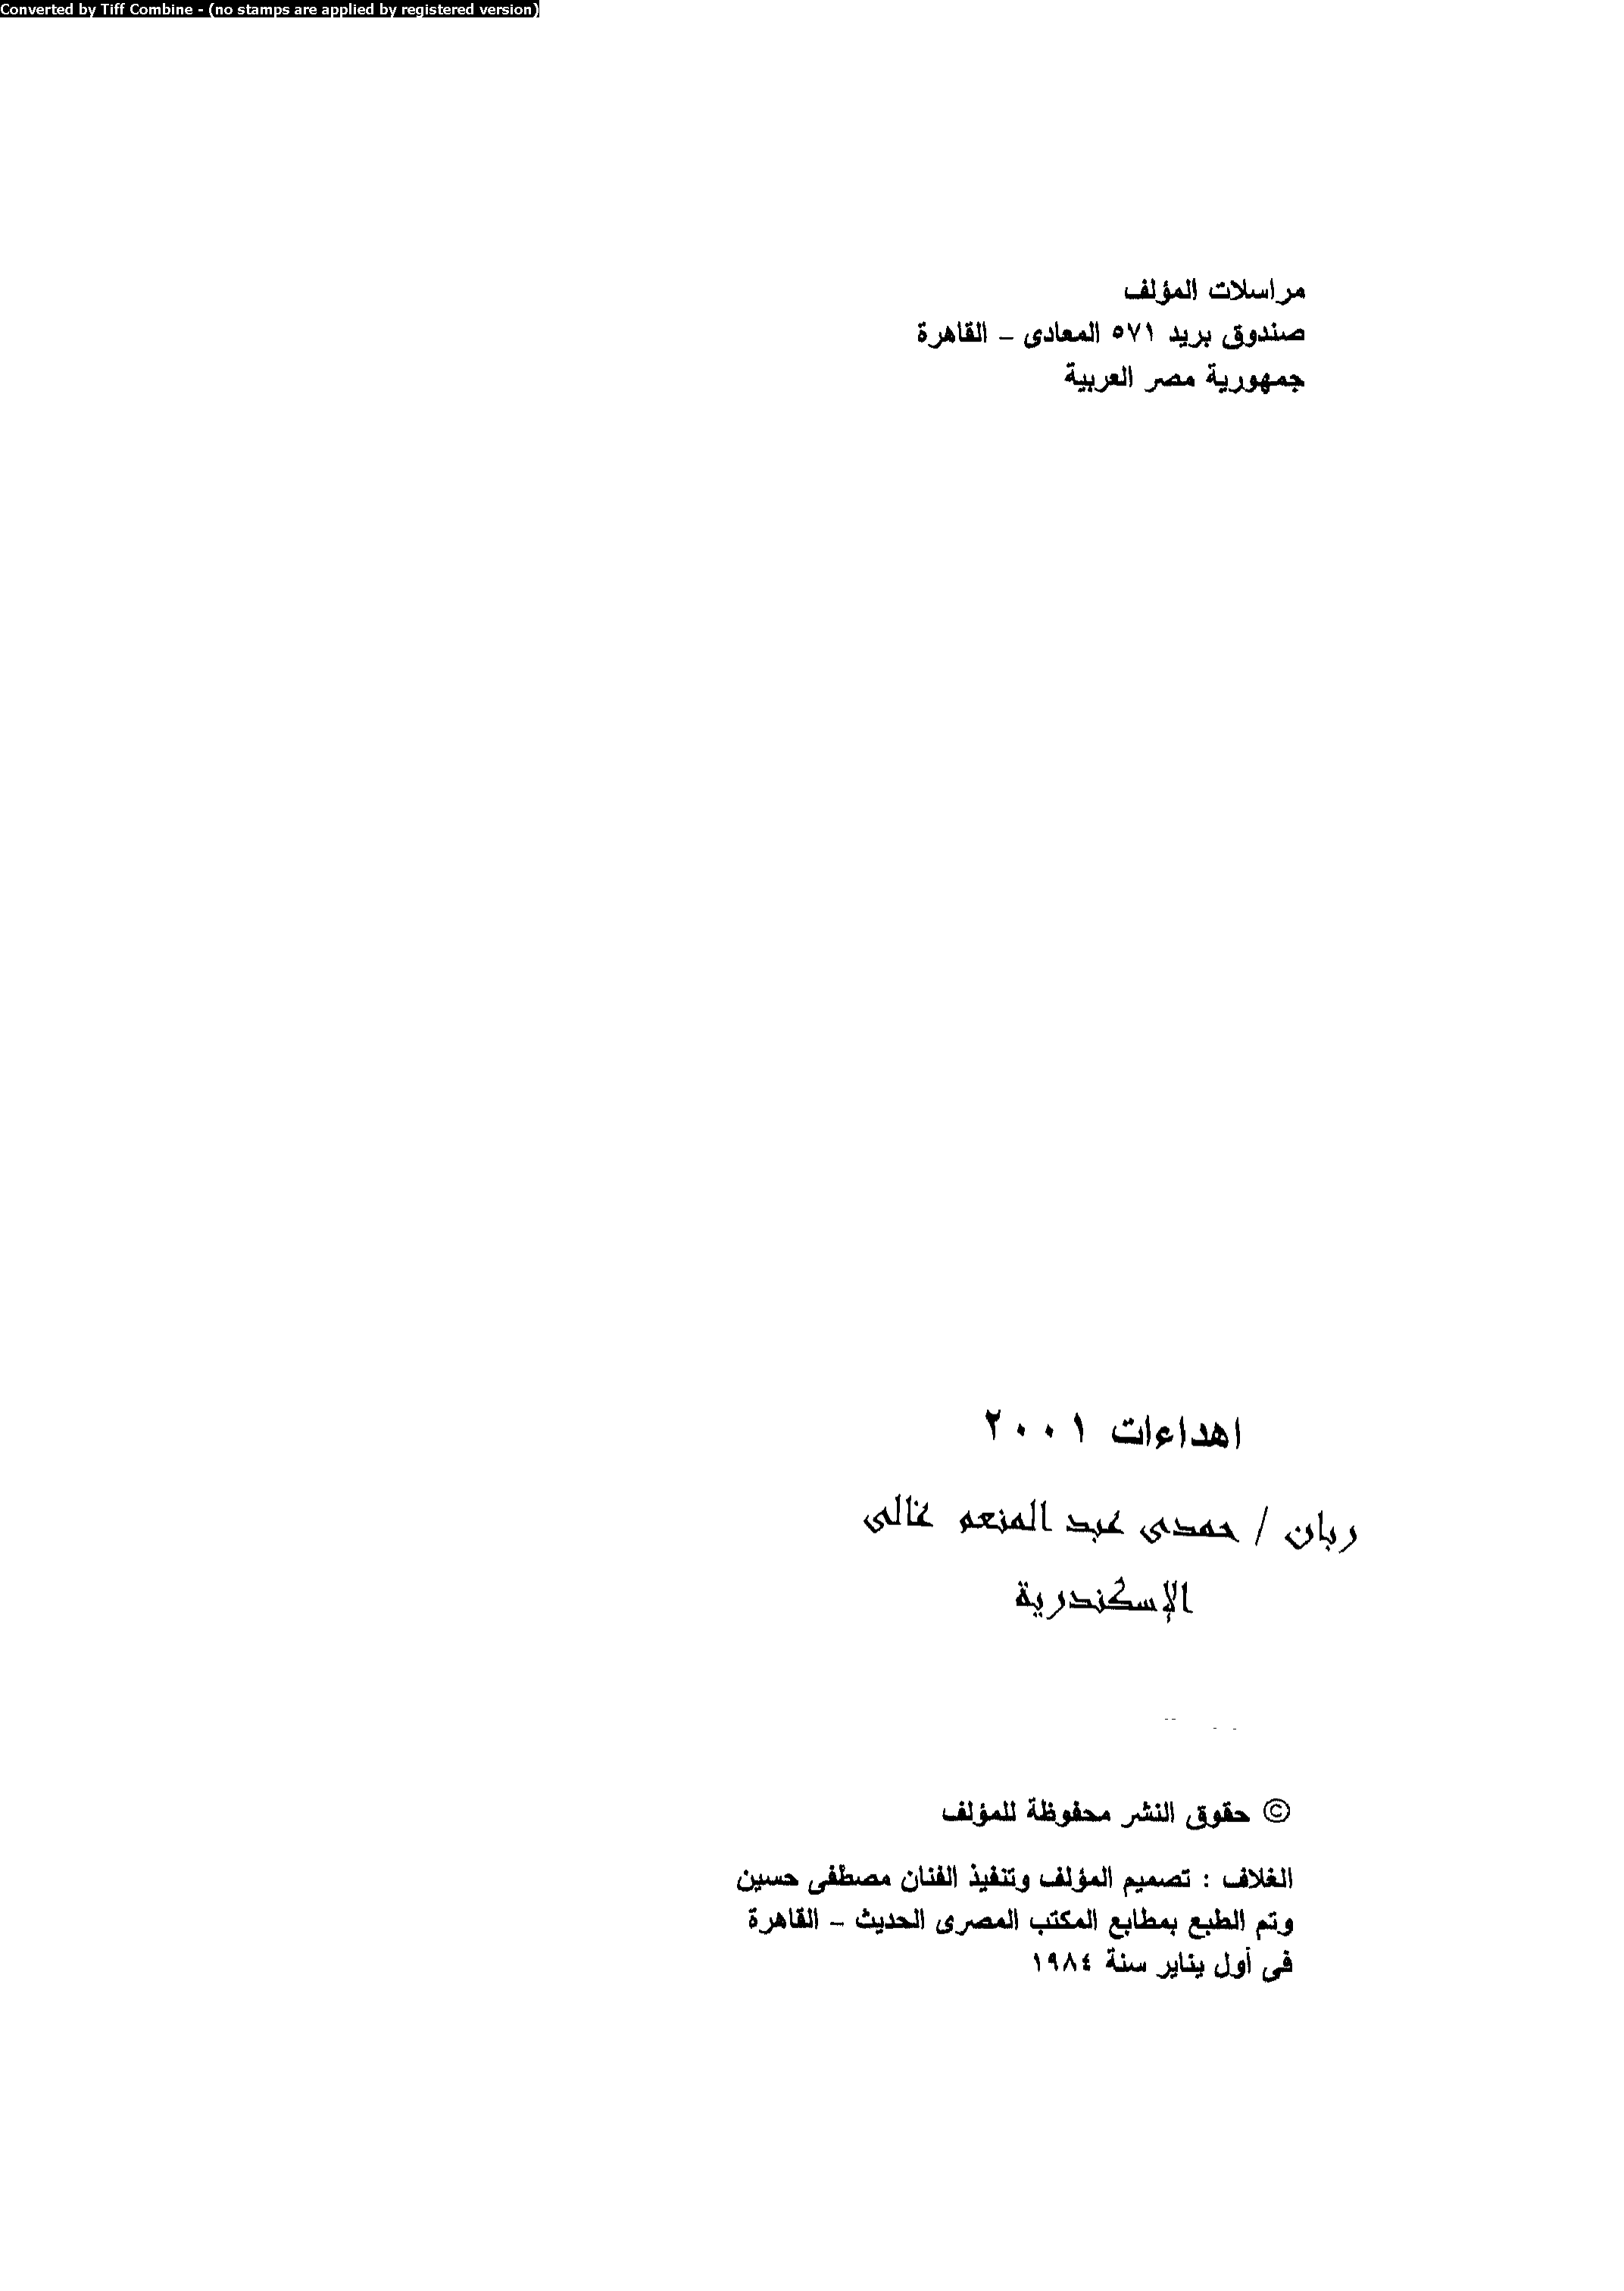 Converted by Tiff Combine - (no stamps are applied by registered version)
مراسلات المؤلف
صندوق بريد ٥٧١ المعادى – القاهرة
جمهورية مصر العربية
اهداءات ٢٠٠١
ربان / حمدى عبد المنعم غالى
الإسكندرية
© حقوق النشر محفوظة للمؤلف
الغلاف : تصميم المؤلف وتنفيذ الفنان مصطفى حسين
وتم الطبع بمطابع المكتب المصرى الحديث – القاهرة
فى أول يناير سنة ١٩٨٤